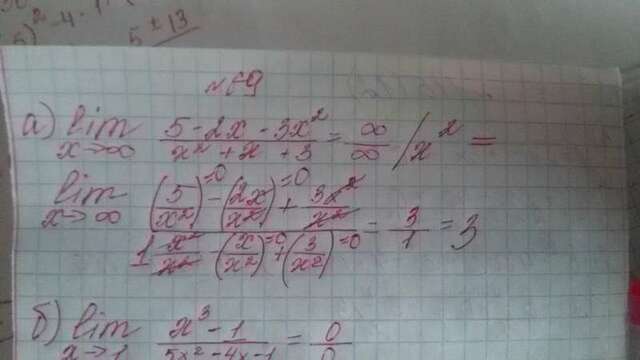 5)² - 4 · 1
5 ± 13
№69
а) lim x→∞ (5 - 2x - 3x²)/(x² + x + 3) = ∞/∞ /x² =
lim x→∞ ((5/x²)=0 - (2x/x²)=0 + 3x²/x²)/(1 x²/x² - (x/x²)=0 + (3/x²)=0) = 3/1 = 3
б) lim x→1 (x³ - 1)/(5x² - 4x - 1) = 0/0